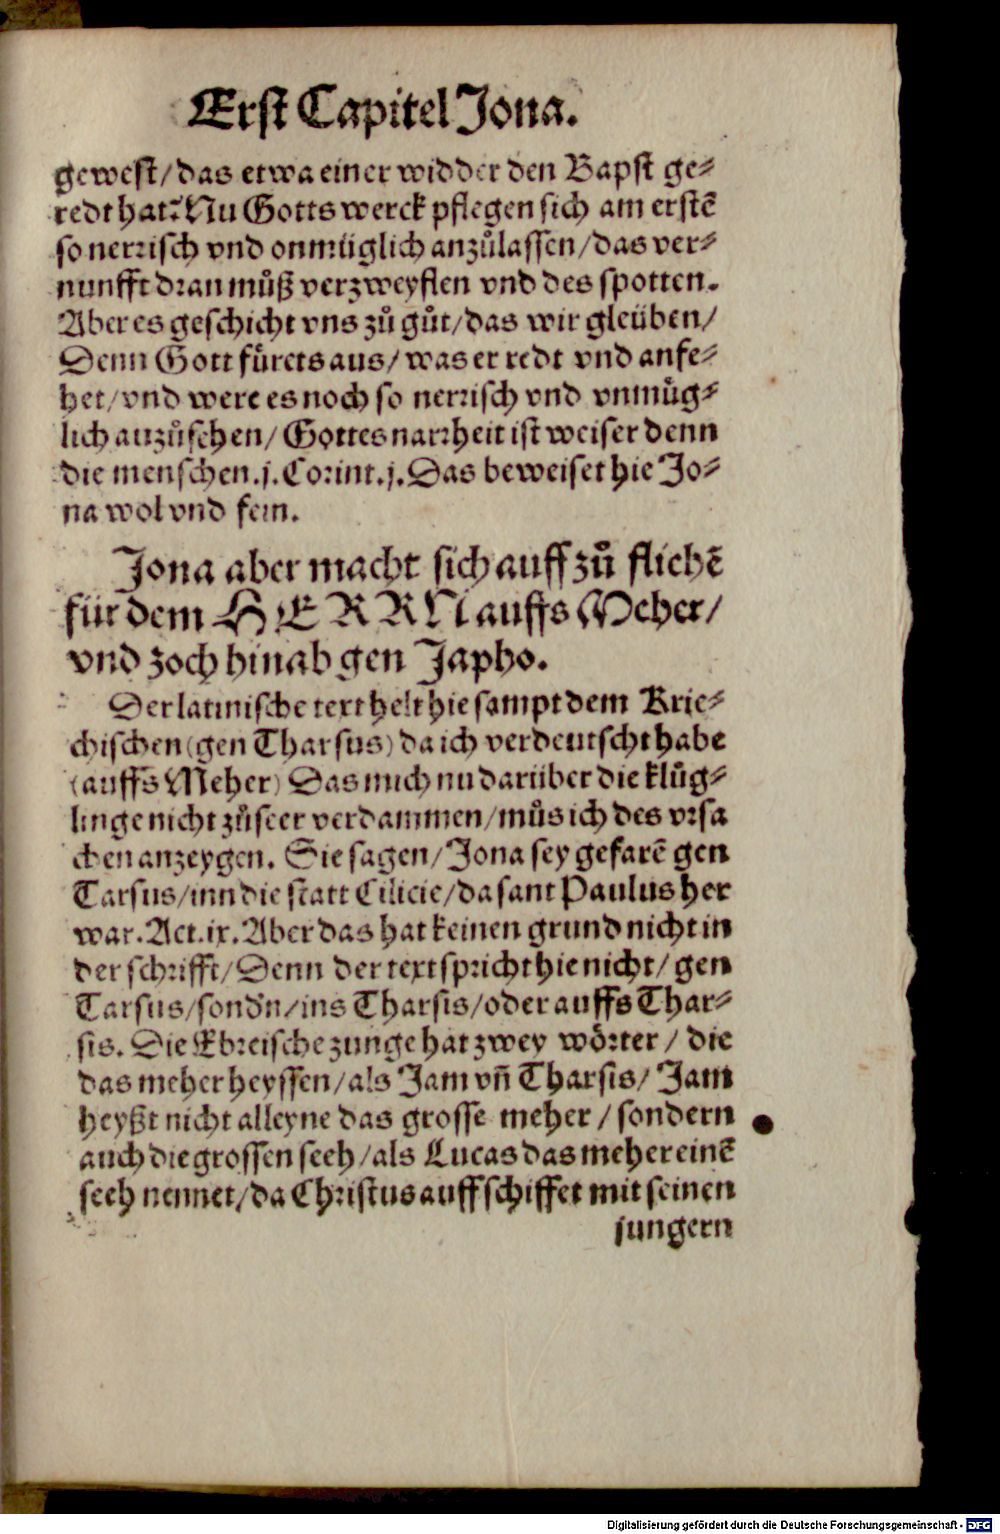 Erst Capitel Jona.
gewest/das etwa einer widder den Bapst ge⸗
redt hat? Nu Gotts werck pflegen sich am erstē
so nerrisch vnd onmüglich anzůlassen/das ver⸗
nunfft dran můß verzweyflen vnd des spotten.
Aber es geschicht vns zů gůt/das wir gleüben/
Denn Gott fürets aus/was er redt vnd anfe⸗
het/vnd were es noch so nerrisch vnd vnmüg⸗
lich anzůsehen/Gottes narrheit ist weiser denn
die menschen.j.Corint.j.Das beweiset hie Jo⸗
na wol vnd fein.
Jona aber macht sich auff zů fliehē
für dem HERRN auffs Meher/
vnd zoch hinab gen Japho.
Der latinische text helt hie sampt dem Krie⸗
chischen (gen Tharsus) da ich verdeutscht habe
(auffs Meher) Das mich nu darüber die klüg⸗
linge nicht zů seer verdammen/můs ich des vrsa
chen anzeygen. Sie sagen/Jona sey gefarē gen
Tarsus/inn die statt Cilicie/da sant Paulus her
war.Act.ix.Aber das hat keinen grund nicht in
der schrifft/Denn der text spricht hie nicht/gen
Tarsus/sondn/ins Tharsis/oder auffs Thar⸗
sis. Die Ebreische zunge hat zwey wörter/die
das meher heyssen/als Jam vñ Tharsis/Jam
heyßt nicht alleyne das grosse meher/sondern
auch die grossen seeh/als Lucas das meher einē
seeh nennet/da Christus auff schiffet mit seinen
jungern
Digitalisierung gefördert durch die Deutsche Forschungsgemeinschaft - DFG